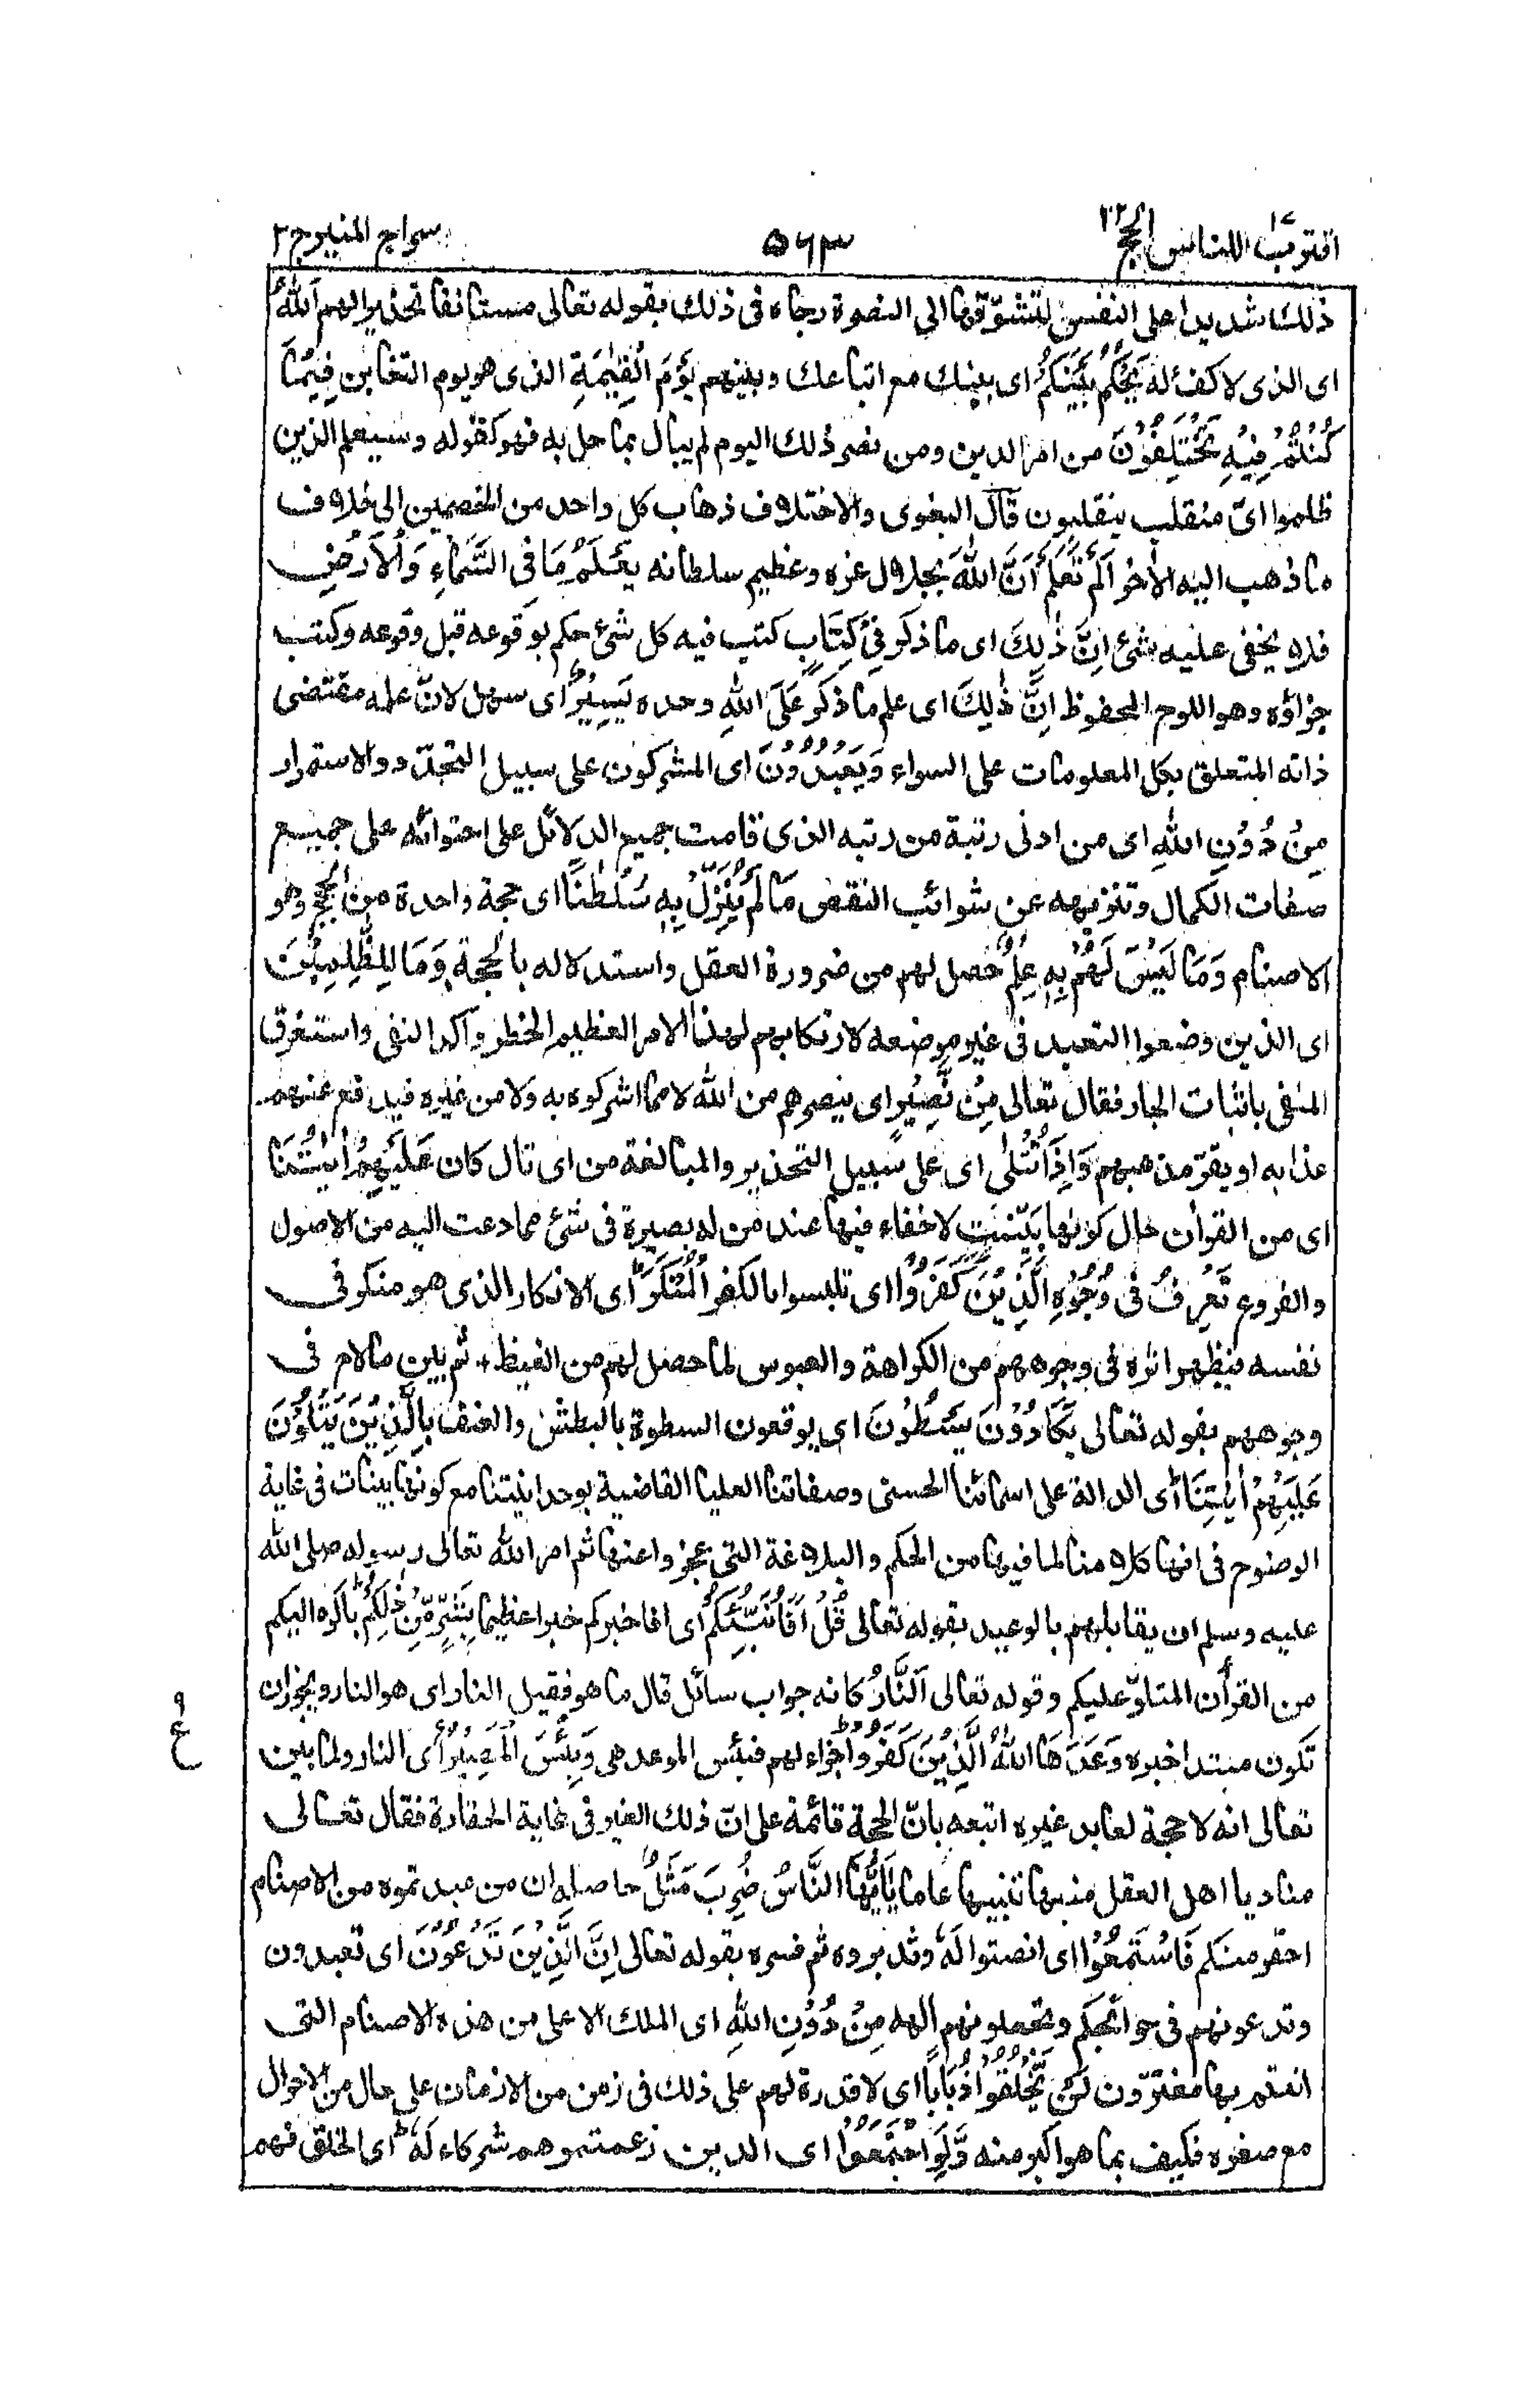 اقترب للناس ١٧ الحج ٢٢
٥٦٣
سراج المنير ج ٢
ذلك شديدا على النفس لتشوّقها الى النصرة رجاه فى ذلك بقوله تعالى مستانفا تحذيرا لهم اَللّٰهُ
اى الذى لا كفء له يَحْكُمُ بَيْنَكُمْ اى بينك مع اتباعك وبينهم يَوْمَ الْقِيٰمَةِ الذى هو يوم التغابن فِيْمَا
كُنْتُمْ فِيْهِ تَخْتَلِفُوْنَ من امر الدين ومن نصر ذلك اليوم لم يبال بما حل به فهو كقوله وسيعلم الذين
ظلموا اىّ منقلب ينقلبون قال البغوى والاختلاف ذهاب كل واحد من الخصمين الى خلاف
ما ذهب اليه الأخر اَلَمْ تَعْلَمْ اَنَّ اللّٰهَ بجلال عزه وعظيم سلطانه يَعْلَمُ مَا فِى السَّمَآءِ وَالْاَرْضِ
فلا يخفى عليه شئ اِنَّ ذٰلِكَ اى ما ذكر فِىْ كِتَابٍ كتب فيه كل شئ حكم بوقوعه قبل وقوعه وكتب
جزاؤه وهو اللوح المحفوظ اِنَّ ذٰلِكَ اى علم ما ذكر عَلَى اللّٰهِ وحده يَسِيْرٌ اى سهل لانّ علمه مقتضى
ذاته المتعلق بكل المعلومات على السواء وَيَعْبُدُوْنَ اى المشركون على سبيل التجدّد والاستمرار
مِنْ دُوْنِ اللّٰهِ اى من ادنى رتبة من رتبه الذى قامت جميع الدلائل على احتوائه على جميع
صفات الكمال وتنزيهه عن شوائب النقص مَا لَمْ يُنَزِّلْ بِهٖ سُلْطٰنًا اى حجة واحدة من الحجج وهو
الاصنام وَمَا لَيْسَ لَهُمْ بِهٖ عِلْمٌ حصل لهم من ضرورة العقل واستدلاله بالحجة وَمَا لِلظّٰلِمِيْنَ
اى الذين وضعوا التعبد فى غير موضعه لارتكابهم لهذا الامر العظيم الخطر وأكد النفى واستغرق
المنفى باثبات الجار فقال تعالى مِنْ نَّصِيْرٍ اى ينصرهم من الله لا مما اشركوه به ولا من غيره فيدفع عنهم
عذابه او يقوّ مذهبهم وَاِذَا تُتْلٰى اى على سبيل التحذير والمبالغة من اى تال كان عَلَيْهِمْ اٰيٰتُنَا
اى من القرأن حال كونها بَيِّنٰتٍ لا خفاء فيها عند من له بصيرة فى شئ مما دعت اليه من الاصول
والفروع تَعْرِفُ فِىْ وُجُوْهِ الَّذِيْنَ كَفَرُوْا اى تلبسوا بالكفر الْمُنْكَرَ اى الانكار الذى هو منكر فى
نفسه فيظهر اثره فى وجوههم من الكراهة والعبوس لما حصل لهم من الغيظ ثم بين ما لاح فى
وجوههم بقوله تعالى يَكَادُوْنَ يَسْطُوْنَ اى يوقعون السطوة بالبطش والعنف بِالَّذِيْنَ يَتْلُوْنَ
عَلَيْهِمْ اٰيٰتِنَا اى الدالة على اسمائنا الحسنى وصفاتنا العليا القاضية بوحدانيتنا مع كونها بينات فى غاية
الوضوح فى انها كلامنا لما فيها من الحكم والبلاغة التى عجزوا عنها ثم امر الله تعالى رسوله صلى الله
عليه وسلم ان يقابلهم بالوعيد بقوله تعالى قُلْ اَفَاُنَبِّئُكُمْ اى افاخبركم خبرا عظيما بِشَرٍّ مِّنْ ذٰلِكُمْ باكره اليكم
من القرأن المتلوّ عليكم وقوله تعالى اَلنَّارُ كانه جواب سائل قال ما هو فقيل النار اى هو النار ويجوز ان
تكون مبتدا خبره وَعَدَهَا اللّٰهُ الَّذِيْنَ كَفَرُوْا جزاء لهم فبئس الموعد هى وَبِئْسَ الْمَصِيْرُ اى النار ولما بين
تعالى انه لا حجة لعابد غيره اتبعه بانّ الحجة قائمة على انّ ذلك الغير فى غاية الحقارة فقال تعالى
مناديا اهل العقل منبها تنبيها عاما يٰٓاَيُّهَا النَّاسُ ضُرِبَ مَثَلٌ حاصله ان من عبدتموه من الاصنام
احقر منكم فَاسْتَمِعُوْا اى انصتوا لَهٗ وتدبروه ثم فسره بقوله تعالى اِنَّ الَّذِيْنَ تَدْعُوْنَ اى تعبدون
وتدعونهم فى حوائجكم وتجعلونهم الهه مِنْ دُوْنِ اللّٰهِ اى الملك الاعلى من هذه الاصنام التى
انتم بها مغترّون لَنْ يَّخْلُقُوْا ذُبَابًا اى لا قدرة لهم على ذلك فى زمن من الازمان على حال من الاحوال
مع صغره فكيف بما هو اكبر منه وَّلَوِ اجْتَمَعُوْا اى الذين زعمتموهم شركاء لَهٗ اى الخلق فهم
٩
ع